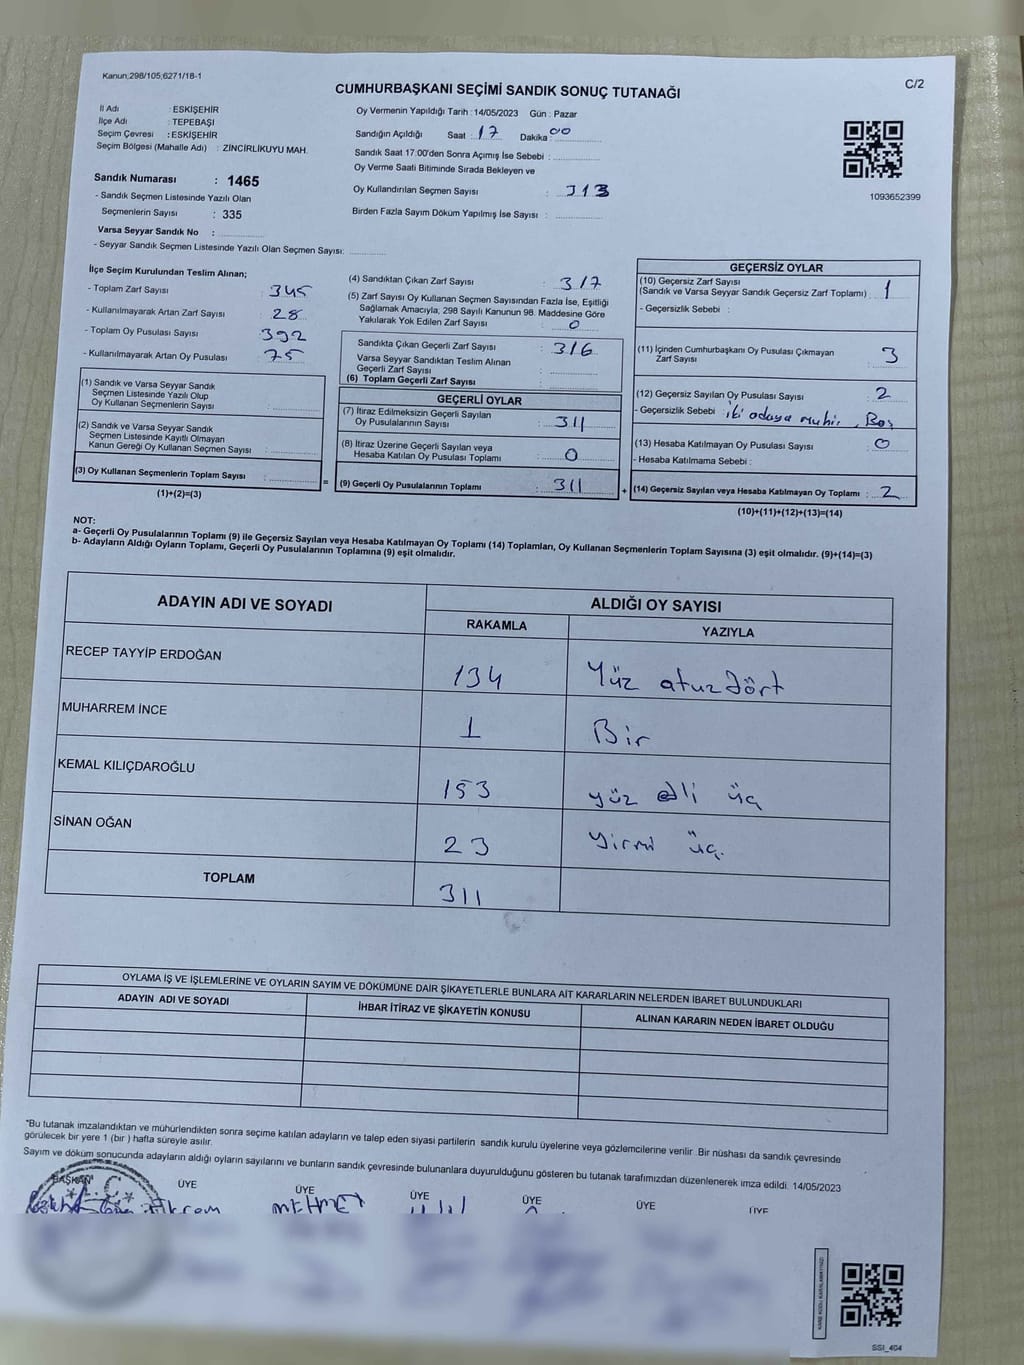 Kanun;298/105;6271/18-1
C/2
CUMHURBAŞKANI SEÇİMİ SANDIK SONUÇ TUTANAĞI
İl Adı : ESKİŞEHİR
İlçe Adı : TEPEBAŞI
Seçim Çevresi : ESKİŞEHİR
Seçim Bölgesi (Mahalle Adı) : ZİNCİRLİKUYU MAH.
Sandık Numarası : 1465
- Sandık Seçmen Listesinde Yazılı Olan
Seçmenlerin Sayısı : 335
Varsa Seyyar Sandık No :
- Seyyar Sandık Seçmen Listesinde Yazılı Olan Seçmen Sayısı:
Oy Vermenin Yapıldığı Tarih : 14/05/2023 Gün : Pazar
Sandığın Açıldığı Saat : 17 Dakika : 00
Sandık Saat 17:00'den Sonra Açımış İse Sebebi :
Oy Verme Saati Bitiminde Sırada Bekleyen ve
Oy Kullandırılan Seçmen Sayısı : 313
Birden Fazla Sayım Döküm Yapılmış İse Sayısı :
1093652399
İlçe Seçim Kurulundan Teslim Alınan;
- Toplam Zarf Sayısı : 345
- Kullanılmayarak Artan Zarf Sayısı : 28
- Toplam Oy Pusulası Sayısı : 392
- Kullanılmayarak Artan Oy Pusulası : 75
(1) Sandık ve Varsa Seyyar Sandık
Seçmen Listesinde Yazılı Olup
Oy Kullanan Seçmenlerin Sayısı :
(2) Sandık ve Varsa Seyyar Sandık
Seçmen Listesinde Kayıtlı Olmayan
Kanun Gereği Oy Kullanan Seçmen Sayısı :
(3) Oy Kullanan Seçmenlerin Toplam Sayısı :
(1)+(2)=(3)
(4) Sandıktan Çıkan Zarf Sayısı : 317
(5) Zarf Sayısı Oy Kullanan Seçmen Sayısından Fazla İse, Eşitliği
Sağlamak Amacıyla, 298 Sayılı Kanunun 98. Maddesine Göre
Yakılarak Yok Edilen Zarf Sayısı : 0
Sandıkta Çıkan Geçerli Zarf Sayısı : 316
Varsa Seyyar Sandıktan Teslim Alınan
Geçerli Zarf Sayısı :
(6) Toplam Geçerli Zarf Sayısı :
GEÇERLİ OYLAR
(7) İtiraz Edilmeksizin Geçerli Sayılan
Oy Pusulalarının Sayısı : 311
(8) İtiraz Üzerine Geçerli Sayılan veya
Hesaba Katılan Oy Pusulası Toplamı : 0
= (9) Geçerli Oy Pusulalarının Toplamı : 311
GEÇERSİZ OYLAR
(10) Geçersiz Zarf Sayısı
(Sandık ve Varsa Seyyar Sandık Geçersiz Zarf Toplamı) : 1
- Geçersizlik Sebebi :
(11) İçinden Cumhurbaşkanı Oy Pusulası Çıkmayan
Zarf Sayısı : 3
(12) Geçersiz Sayılan Oy Pusulası Sayısı : 2
- Geçersizlik Sebebi : iki adaya muhür, Boş
(13) Hesaba Katılmayan Oy Pusulası Sayısı : 0
- Hesaba Katılmama Sebebi :
+ (14) Geçersiz Sayılan veya Hesaba Katılmayan Oy Toplamı : 2
(10)+(11)+(12)+(13)=(14)
NOT:
a- Geçerli Oy Pusulalarının Toplamı (9) ile Geçersiz Sayılan veya Hesaba Katılmayan Oy Toplamı (14) Toplamları, Oy Kullanan Seçmenlerin Toplam Sayısına (3) eşit olmalıdır. (9)+(14)=(3)
b- Adayların Aldığı Oyların Toplamı, Geçerli Oy Pusulalarının Toplamına (9) eşit olmalıdır.
ADAYIN ADI VE SOYADI
ALDIĞI OY SAYISI
RAKAMLA YAZIYLA
RECEP TAYYİP ERDOĞAN 134 Yüz atuz dört
MUHARREM İNCE 1 Bir
KEMAL KILIÇDAROĞLU 153 yüz elli üç
SİNAN OĞAN 23 Yirmi üç.
TOPLAM 311
OYLAMA İŞ VE İŞLEMLERİNE VE OYLARIN SAYIM VE DÖKÜMÜNE DAİR ŞİKAYETLERLE BUNLARA AİT KARARLARIN NELERDEN İBARET BULUNDUKLARI
ADAYIN ADI VE SOYADI İHBAR İTİRAZ VE ŞİKAYETİN KONUSU ALINAN KARARIN NEDEN İBARET OLDUĞU
"Bu tutanak imzalandıktan ve mühürlendikten sonra seçime katılan adayların ve talep eden siyasi partilerin sandık kurulu üyelerine veya gözlemcilerine verilir. Bir nüshası da sandık çevresinde
görülecek bir yere 1 (bir ) hafta süreyle asılır.
Sayım ve döküm sonucunda adayların aldığı oyların sayılarını ve bunların sandık çevresinde bulunanlara duyurulduğunu gösteren bu tutanak tarafımızdan düzenlenerek imza edildi. 14/05/2023
BAŞKAN ÜYE ÜYE ÜYE ÜYE ÜYE ÜYE
Ekrem MEHMET
SSI_404